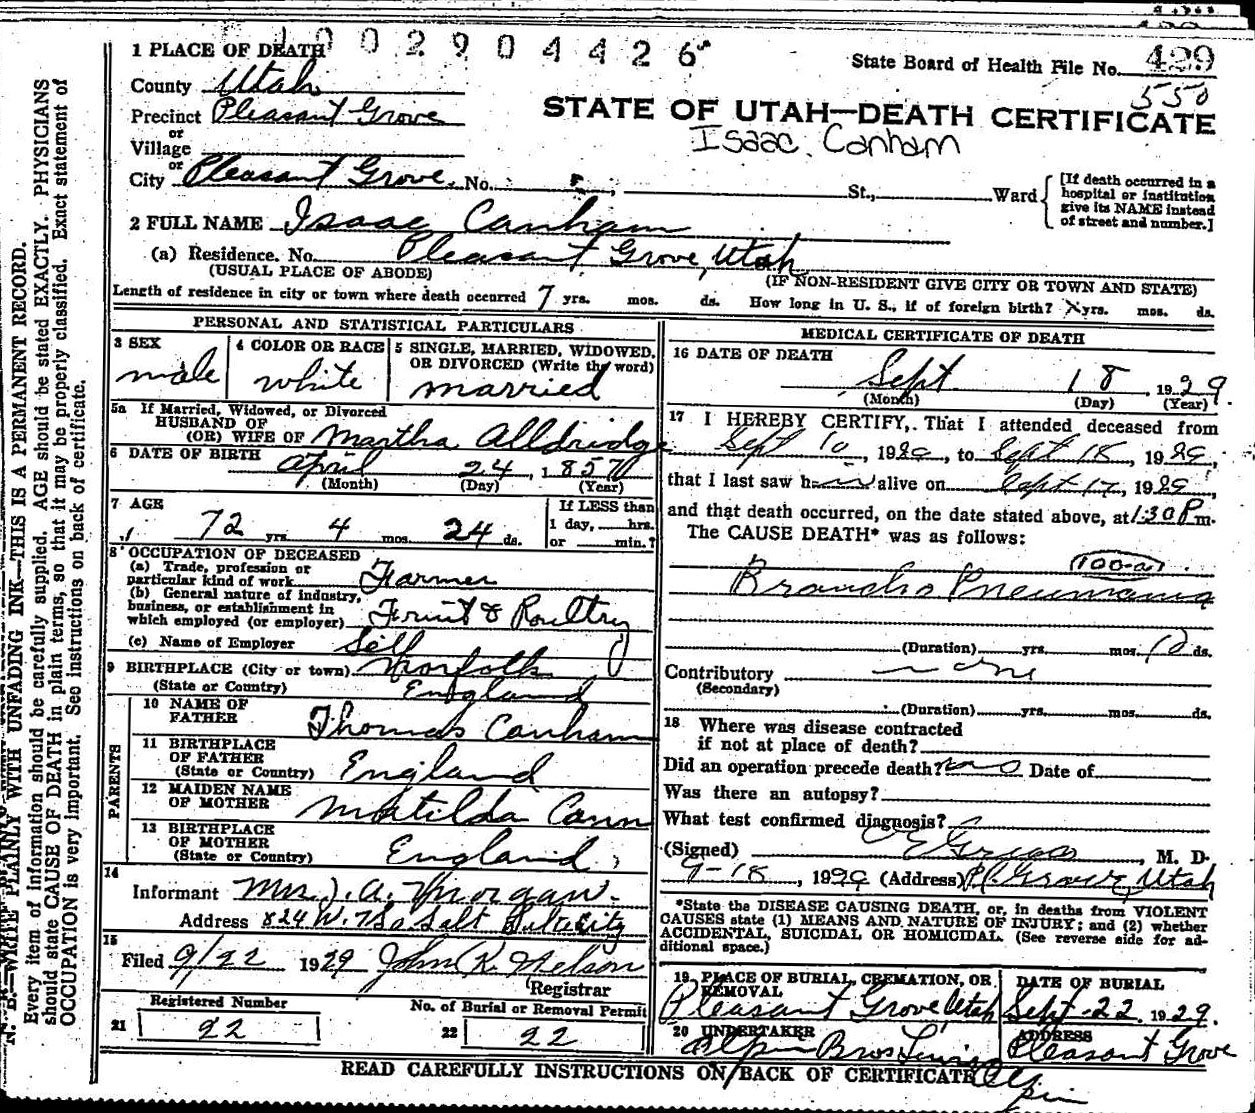 1002904426
State Board of Health File No. 429
550
1 PLACE OF DEATH
County Utah
Precinct Pleasant Grove
or
Village
or
City Pleasant Grove. No. St., Ward
[If death occurred in a hospital or institution give its NAME instead of street and number.]
STATE OF UTAH—DEATH CERTIFICATE
Isaac Canham
2 FULL NAME Isaac Canham
(a) Residence. No. Pleasant Grove, Utah
(USUAL PLACE OF ABODE) (IF NON-RESIDENT GIVE CITY OR TOWN AND STATE)
Length of residence in city or town where death occurred 7 yrs. mos. ds. How long in U. S., if of foreign birth? x yrs. mos. ds.
PERSONAL AND STATISTICAL PARTICULARS
3 SEX male
4 COLOR OR RACE white
5 SINGLE, MARRIED, WIDOWED, OR DIVORCED (Write the word) married
5a If Married, Widowed, or Divorced
HUSBAND OF
(OR) WIFE OF Martha Alldridge
6 DATE OF BIRTH April 24, 1857
(Month) (Day) (Year)
7 AGE
72 yrs. 4 mos. 24 ds.
If LESS than
1 day, hrs.
or min.?
8 OCCUPATION OF DECEASED
(a) Trade, profession or
particular kind of work Farmer
(b) General nature of industry,
business, or establishment in
which employed (or employer) Fruit & Poultry
(c) Name of Employer Self
9 BIRTHPLACE (City or town) Norfolk
(State or Country) England
PARENTS
10 NAME OF
FATHER Thomas Canham
11 BIRTHPLACE
OF FATHER
(State or Country) England
12 MAIDEN NAME
OF MOTHER Matilda Cann
13 BIRTHPLACE
OF MOTHER
(State or Country) England
14
Informant Mrs J. A. Morgan.
Address 824 W. 7 So Salt City
15
Filed 9/22 1929 John K. Nelson
Registrar
Registered Number
21 22
No. of Burial or Removal Permit
22 22
MEDICAL CERTIFICATE OF DEATH
16 DATE OF DEATH
Sept. 18, 1929.
(Month) (Day) (Year)
17 I HEREBY CERTIFY, That I attended deceased from
Sept 10, 1929, to Sept 18, 1929,
that I last saw him alive on Sept 17, 1929,
and that death occurred, on the date stated above, at 1:30 P m.
The CAUSE DEATH* was as follows:
100-a
Broncho Pneumonia
(Duration) yrs. mos. 10 ds.
Contributory none
(Secondary)
(Duration) yrs. mos. ds.
18 Where was disease contracted
if not at place of death?
Did an operation precede death? no Date of
Was there an autopsy?
What test confirmed diagnosis?
(Signed) M. D.
9-18, 1929 (Address) Pl Grove, Utah
*State the DISEASE CAUSING DEATH, or, in deaths from VIOLENT
CAUSES state (1) MEANS AND NATURE OF INJURY; and (2) whether
ACCIDENTAL, SUICIDAL OR HOMICIDAL. (See reverse side for ad-
ditional space.)
19 PLACE OF BURIAL, CREMATION, OR
REMOVAL
Pleasant Grove Utah
DATE OF BURIAL
Sept-22, 1929.
20 UNDERTAKER
Alpin Bros
ADDRESS
Pleasant Grove
READ CAREFULLY INSTRUCTIONS ON BACK OF CERTIFICATE
N. B.—WRITE PLAINLY WITH UNFADING INK—THIS IS A PERMANENT RECORD.
Every item of information should be carefully supplied. AGE should be stated EXACTLY. PHYSICIANS
should state CAUSE OF DEATH in plain terms, so that it may be properly classified. Exact statement of
OCCUPATION is very important. See instructions on back of certificate.